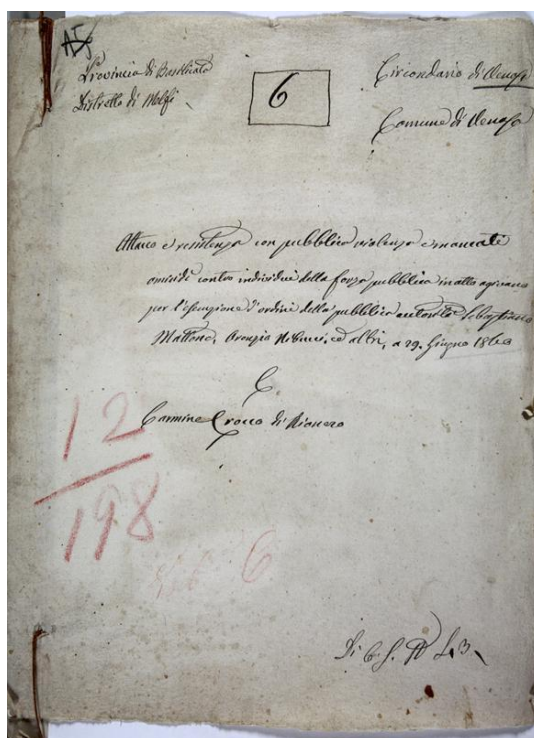 AJ
Provincia di Basilicata
Distretto di Melfi
6
Circondario di Venosa
Comune di Venosa
Attacco e resistenza con pubblica violenza e mancati
omicidi contro individui della forza pubblica in atto agivano
per l'esecuzione d'ordini della pubblica autorità Sebastiano
Mattone, Oronzio Nibucci, ed altri, a 29. Giugno 1860
C.
Carmine Crocco di Rionero
12
198
6
Di C. S. A